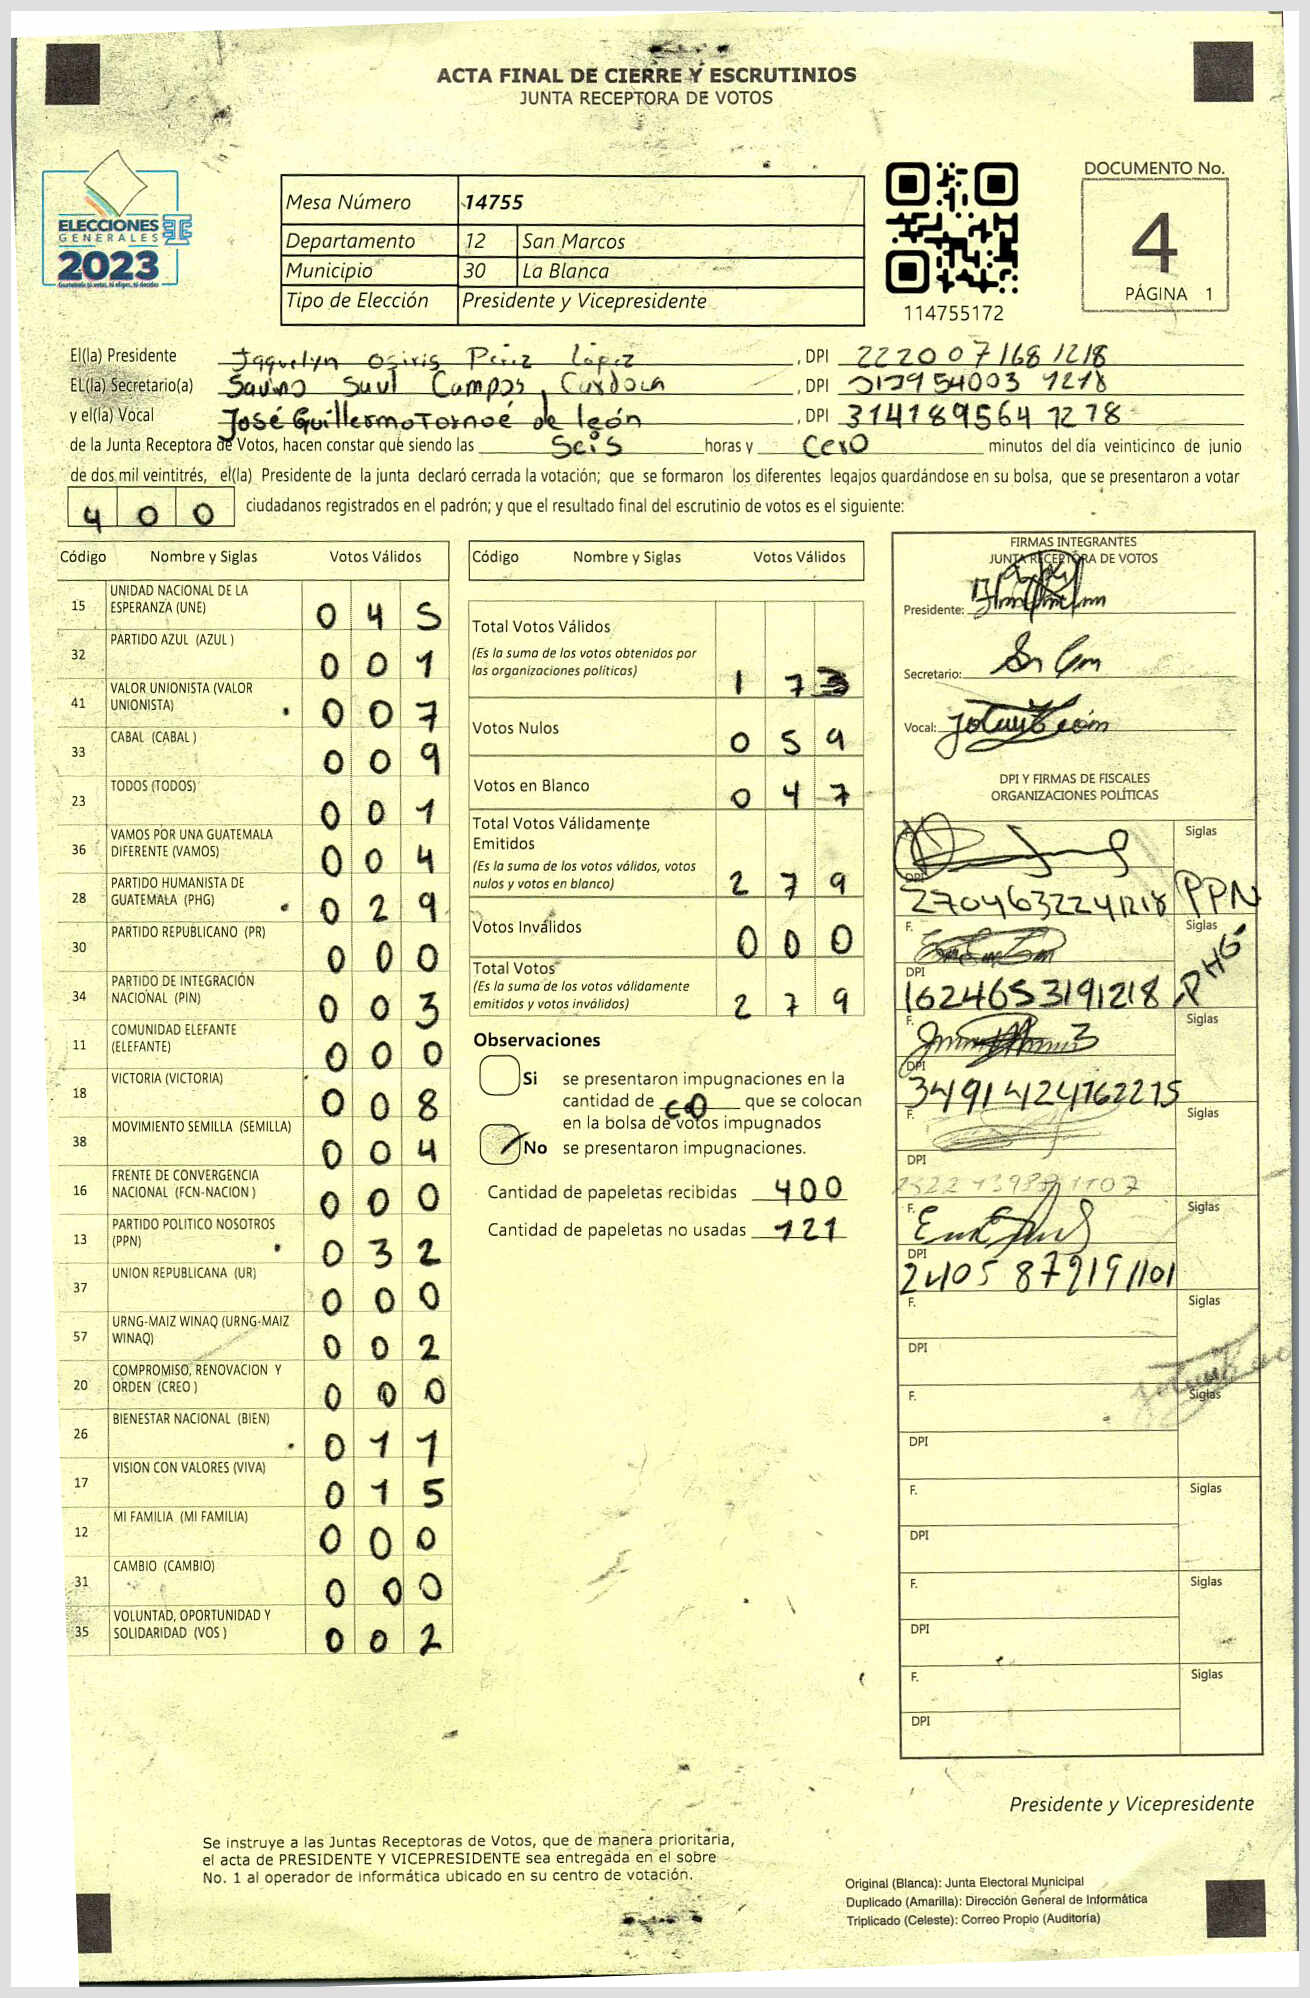 ACTA FINAL DE CIERRE Y ESCRUTINIOS
JUNTA RECEPTORA DE VOTOS
ELECCIONES
GENERALES
2023
Mesa Número 14755
Departamento 12 San Marcos
Municipio 30 La Blanca
Tipo de Elección Presidente y Vicepresidente
114755172
DOCUMENTO No.
4
PÁGINA 1
El(la) Presidente Jaquelyn Osiris Pérez López , DPI 2220071681218
EL(la) Secretario(a) Savino Saul Campos Cardona , DPI
y el(la) Vocal José Guillermo Tornoé de león , DPI 3141895641218
de la Junta Receptora de Votos, hacen constar que siendo las Seis horas y Cero minutos del día veinticinco de junio
de dos mil veintitrés, el(la) Presidente de la junta declaró cerrada la votación; que se formaron los diferentes legajos guardándose en su bolsa, que se presentaron a votar
400 ciudadanos registrados en el padrón; y que el resultado final del escrutinio de votos es el siguiente:
Código Nombre y Siglas Votos Válidos
15 UNIDAD NACIONAL DE LA ESPERANZA (UNE) 045
32 PARTIDO AZUL (AZUL ) 001
41 VALOR UNIONISTA (VALOR UNIONISTA) 007
33 CABAL (CABAL ) 009
23 TODOS (TODOS) 001
36 VAMOS POR UNA GUATEMALA DIFERENTE (VAMOS) 004
28 PARTIDO HUMANISTA DE GUATEMALA (PHG) 029
30 PARTIDO REPUBLICANO (PR) 000
34 PARTIDO DE INTEGRACIÓN NACIONAL (PIN) 003
11 COMUNIDAD ELEFANTE (ELEFANTE) 000
18 VICTORIA (VICTORIA) 008
38 MOVIMIENTO SEMILLA (SEMILLA) 004
16 FRENTE DE CONVERGENCIA NACIONAL (FCN-NACION ) 000
13 PARTIDO POLITICO NOSOTROS (PPN) 032
37 UNION REPUBLICANA (UR) 000
57 URNG-MAIZ WINAQ (URNG-MAIZ WINAQ) 002
20 COMPROMISO, RENOVACION Y ORDEN (CREO ) 000
26 BIENESTAR NACIONAL (BIEN) 011
17 VISION CON VALORES (VIVA) 015
12 MI FAMILIA (MI FAMILIA) 000
31 CAMBIO (CAMBIO) 000
35 VOLUNTAD, OPORTUNIDAD Y SOLIDARIDAD (VOS ) 002
Código Nombre y Siglas Votos Válidos
Total Votos Válidos 173
(Es la suma de los votos obtenidos por
las organizaciones políticas)
Votos Nulos 059
Votos en Blanco 047
Total Votos Válidamente
Emitidos
(Es la suma de los votos válidos, votos
nulos y votos en blanco) 279
Votos Inválidos 000
Total Votos
(Es la suma de los votos válidamente
emitidos y votos inválidos) 279
Observaciones
Si se presentaron impugnaciones en la
cantidad de que se colocan
en la bolsa de votos impugnados
No se presentaron impugnaciones.
Cantidad de papeletas recibidas 400
Cantidad de papeletas no usadas 121
FIRMAS INTEGRANTES
JUNTA RECEPTORA DE VOTOS
Presidente:
Secretario:
Vocal:
DPI Y FIRMAS DE FISCALES
ORGANIZACIONES POLÍTICAS
F. Siglas
DPI 2704632241218 PPN
F. Siglas
DPI 1624653191218 PHG
F. Siglas
DPI 3491424762215
F. Siglas
DPI
F. Siglas
DPI 2405872191101
F. Siglas
DPI
F. Siglas
DPI
F. Siglas
DPI
F. Siglas
DPI
F. Siglas
DPI
Presidente y Vicepresidente
Se instruye a las Juntas Receptoras de Votos, que de manera prioritaria,
el acta de PRESIDENTE Y VICEPRESIDENTE sea entregada en el sobre
No. 1 al operador de informática ubicado en su centro de votación.
Original (Blanca): Junta Electoral Municipal
Duplicado (Amarilla): Dirección General de Informática
Triplicado (Celeste): Correo Propio (Auditoría)